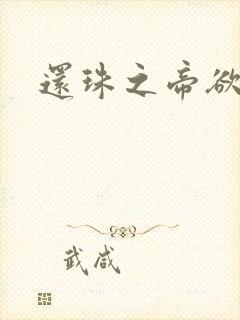 還珠之帝欲
武咸